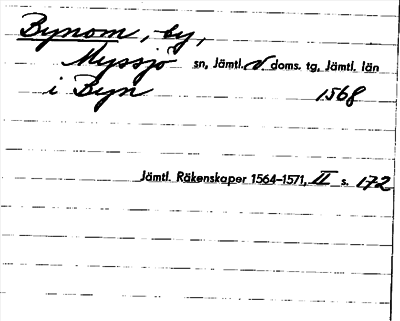 Bynom, by,
Myssjo sn, Jämtl. V. doms. tg, Jämtl. län
i Byn 1568
Jämtl. Räkenskaper 1564–1571, II s. 172